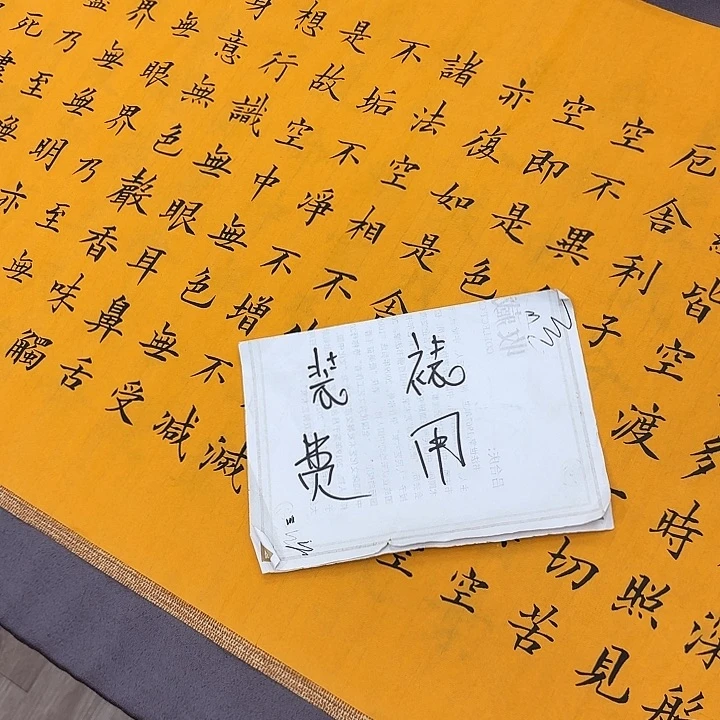 深般
多時照見
皆空渡一切苦
厄舍利子空
空不異空
空即是色
亦復如是舍
諸法空相不滅
不垢不淨不增不減
是故空中無色無受
想行識無眼耳鼻舌
身意無色聲香味觸
無眼界乃至無
界無無明亦
盡乃至無
死
装裱
费用